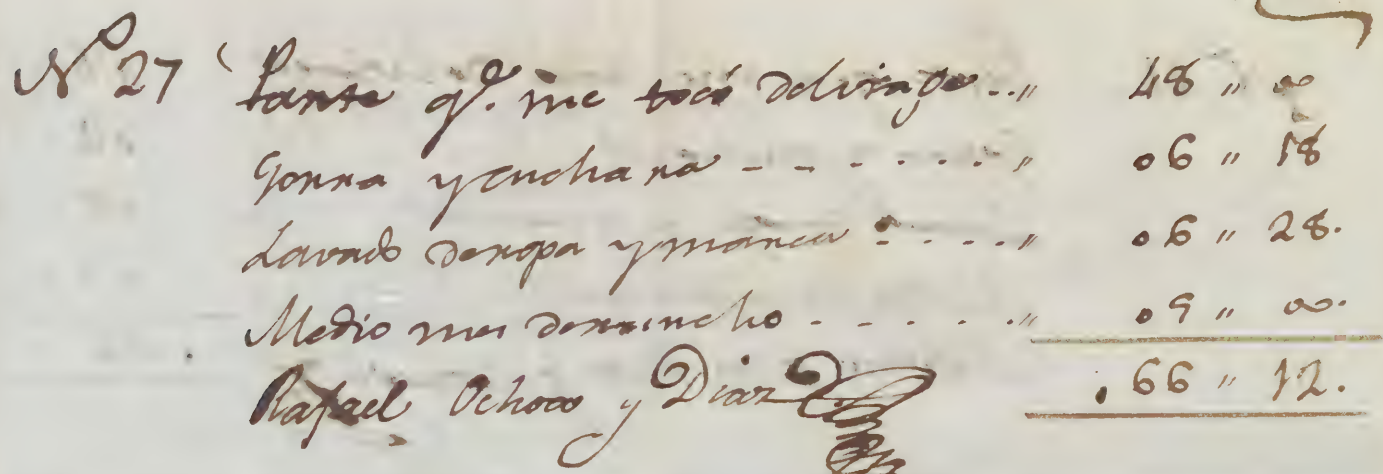 Nº 27 Parte q.e me tocó del viage .. „ 48 „ 00
Gorra y cuchara - - - - - - - „ 06 „ 18
Lavado de ropa y marca - - - - „ 06 „ 28.
Medio mes de rancho - - - - - „ 05 „ 00.
Rafael Ochoa y Diaz . 66 „ 12.